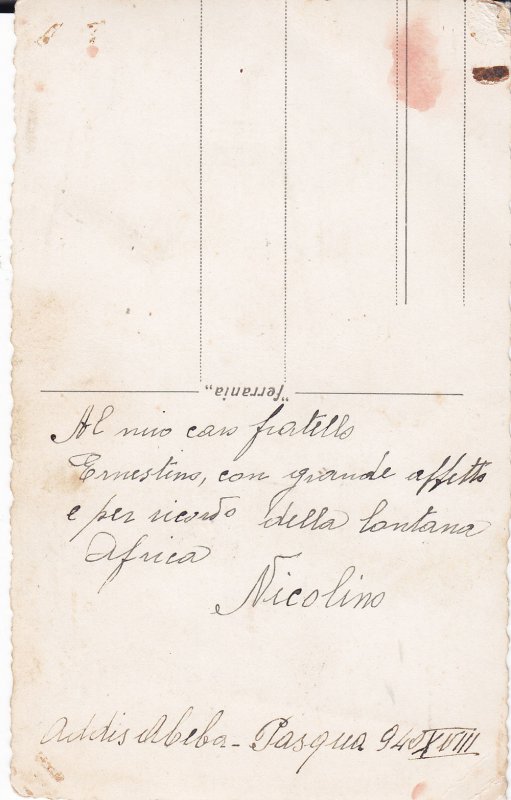 "ferrania"
Al mio caro fratello
Ernestino, con grande affetto
e per ricordo della lontana
Africa
Nicolino
Addis Abeba - Pasqua 940 XVIII